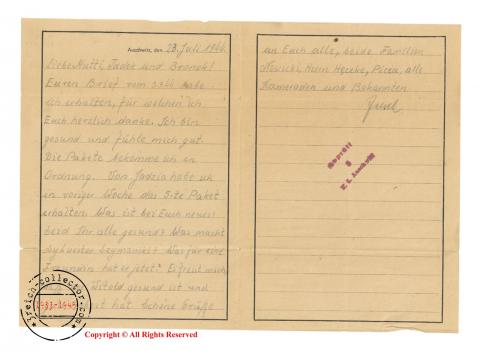 Auschwitz, den 23. Juli 1944
Liebe Mutti, Tadek und Bronek!
Euren Brief vom habe
ich erhalten, für welchen ich
Euch herzlich danke. Ich bin
gesund und fühle mich gut.
Die Pakete bekomme ich in
Ordnung. Von Jadzia habe ich
in voriger Woche das 5-te Paket
erhalten. Was ist bei Euch neues?
Seid Ihr alle gesund? Was macht
Sylwester Szymaniec? Was für eine
hat er jetzt? Es freut mich
Witold gesund ist und
hat. Schöne Grüße
an Euch alle, beide Familien
Nowicki, Herrn alle
Kameraden und Bekannten
Geprüft
K.L. Auschwitz
3reich-collector.com
1933-1945
Copyright © All Rights Reserved